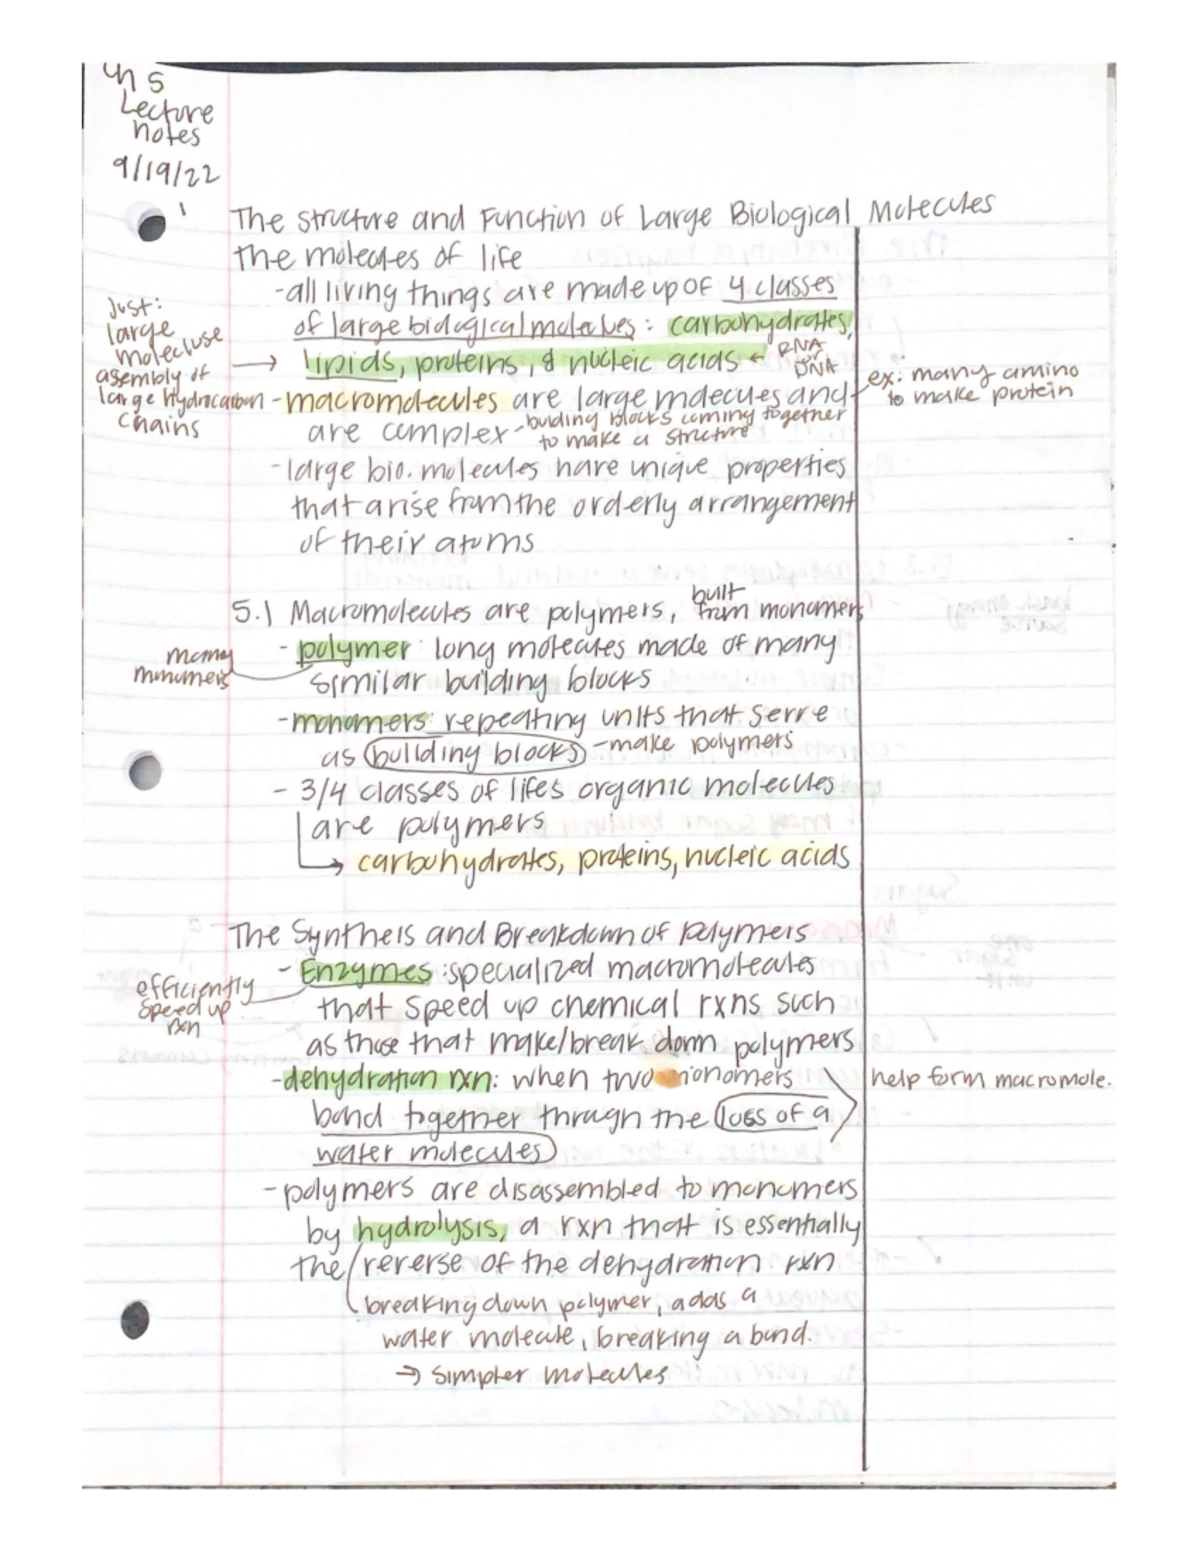 Ch 5
Lecture
notes
9/19/22
The structure and Function of Large Biological Molecules
The molecules of life
-all living things are made up of 4 classes
of large biological molecules: carbohydrates,
Just:
large
molecluse
asembly of
large hydrocarbon
chains
→ lipids, proteins, & nucleic acids ← RNA or DNA
-macromolecules are large molecules and
are complex -building blocks coming together
to make a structure
ex: many amino
to make protein
-large bio. molecules have unique properties
that arise from the orderly arrangement
of their atoms
5.1 Macromolecules are polymers, built
from monomers
- polymer: long molecules made of many
similar building blocks
many
monomers
-monomers: repeating units that serve
as building blocks -make polymers
- 3/4 classes of lifes organic molecules
are polymers
→ carbohydrates, proteins, nucleic acids
The Synthesis and Breakdown of Polymers
- Enzymes: specialized macromolecules
efficiently
speed up
rxn
that speed up chemical rxns such
as those that make/break down polymers
-dehydration rxn: when two monomers
help form macromole.
bond together through the loss of a
water molecules
- polymers are disassembled to monomers
by hydrolysis, a rxn that is essentially
the reverse of the dehydration rxn
breaking down polymer, adds a
water molecule, breaking a bond.
→ simpler molecules